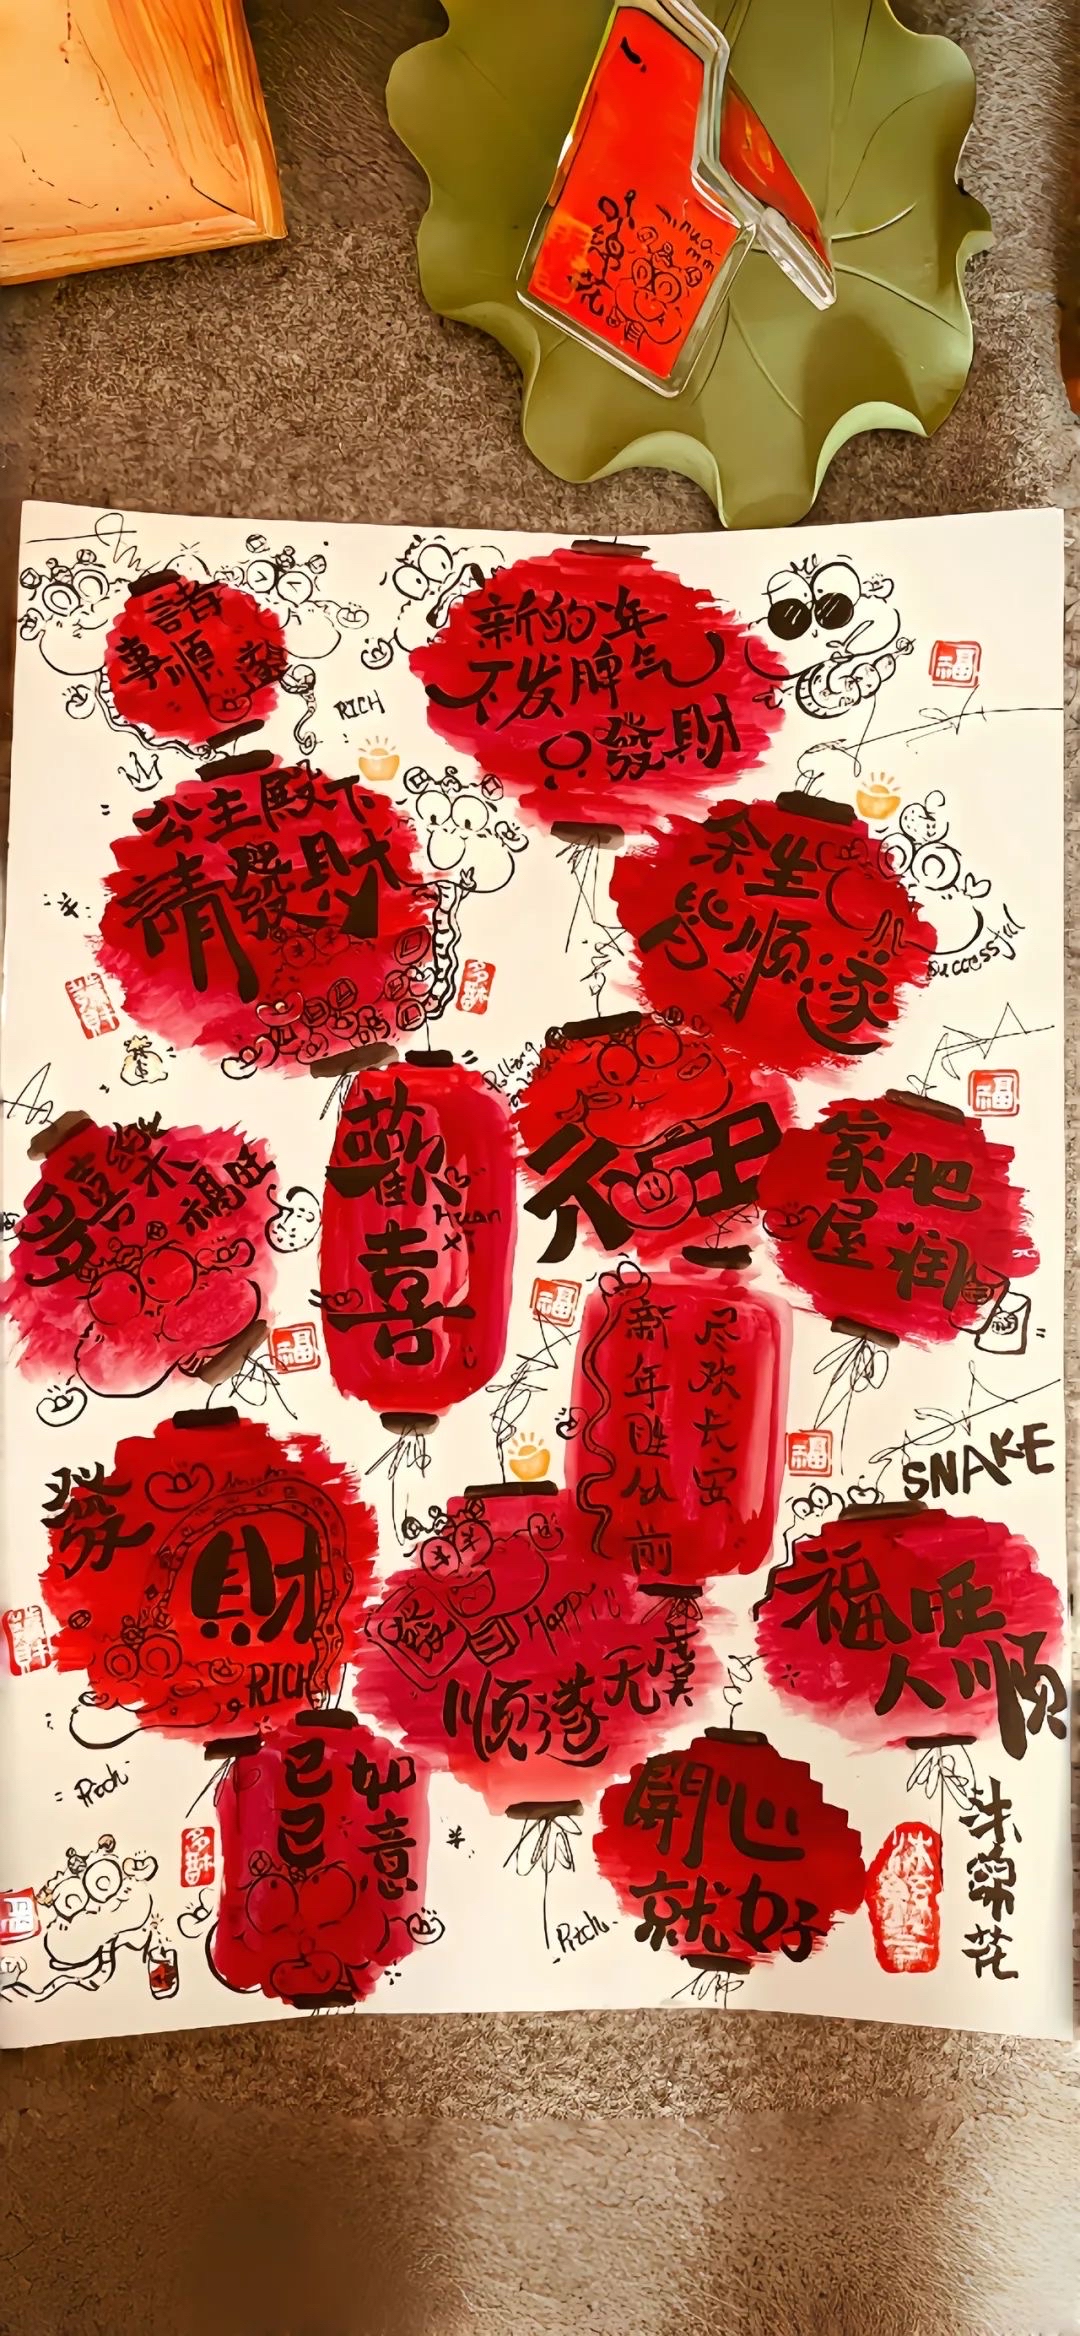 諸
事順
RICH
新的年
不发脾气
只發財
福
公主殿下
請發財
余生
皆顺遂
successful
發財
多财
多喜樂
福旺
歡
喜
Huan
x
福
家肥
屋润
福
福
新年胜从前
尽欢长安
福
SNAKE
發
財
RICH
發
Happy
顺遂无虞
福旺
人顺
發財
Rich
多财
福
如意
Rich
開心
就好